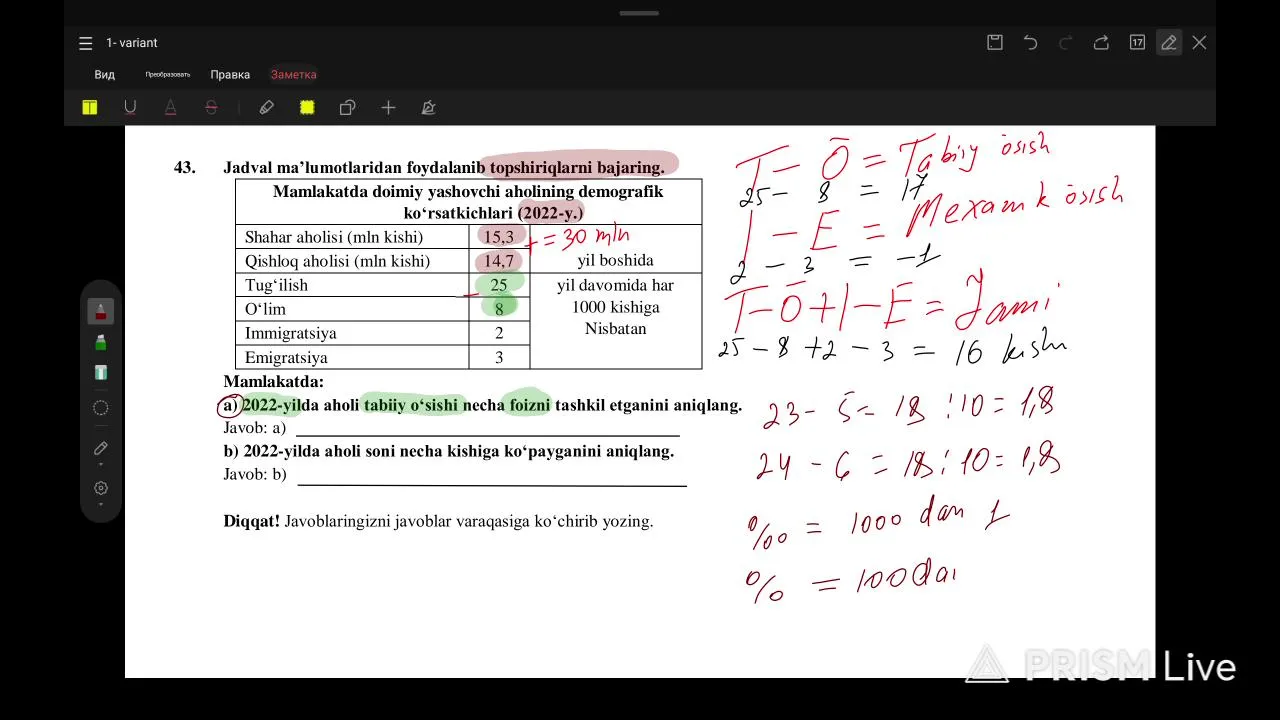 1- variant
17
Вид Преобразовать Правка Заметка
43. Jadval ma’lumotlaridan foydalanib topshiriqlarni bajaring.
Mamlakatda doimiy yashovchi aholining demografik
ko‘rsatkichlari (2022-y.)
Shahar aholisi (mln kishi) 15,3
Qishloq aholisi (mln kishi) 14,7 yil boshida
+ = 30 mln
Tug‘ilish 25 yil davomida har
O‘lim 8 1000 kishiga
Immigratsiya 2 Nisbatan
Emigratsiya 3
Mamlakatda:
a) 2022-yilda aholi tabiiy o‘sishi necha foizni tashkil etganini aniqlang.
Javob: a)
b) 2022-yilda aholi soni necha kishiga ko‘payganini aniqlang.
Javob: b)
Diqqat! Javoblaringizni javoblar varaqasiga ko‘chirib yozing.
T - Ō = Tabiiy ōsish
25 - 8 = 17
I - E = Mexanik ōsish
2 - 3 = -1
T - Ō + I - E = Jami
25 - 8 + 2 - 3 = 16 kishi
23 - 5 = 18 : 10 = 1,8
24 - 6 = 18 : 10 = 1,8
‰ = 1000 dan 1
% = 100 dan
PRISM Live